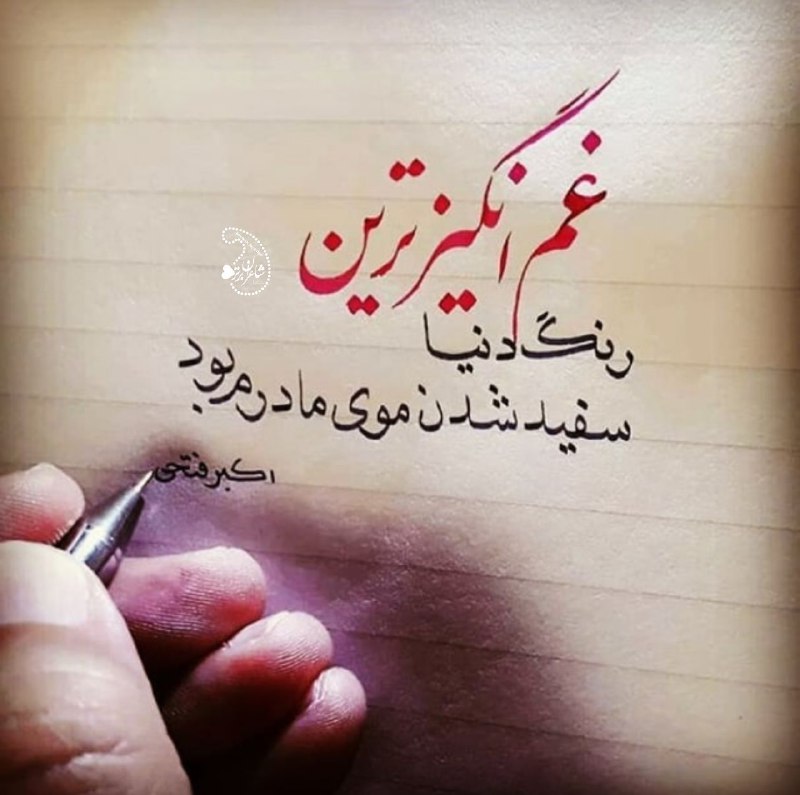 غم انگیزترین
رنگ دنیا
سفید شدن موی مادرم بود
اکبر فتحی